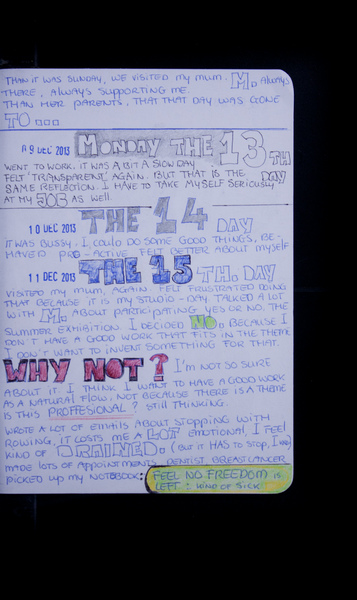 THAN IT WAS SUNDAY, WE VISITED MY MUM. M. ALWAYS
THERE, ALWAYS SUPPORTING ME.
THAN HER PARENTS, THAT THAT DAY WAS GONE
TO ...
09 DEC 2013 MONDAY THE 13TH DAY
WENT TO WORK. IT WAS A BIT A SLOW DAY
FELT 'TRANSPARENT' AGAIN. BUT THAT IS THE
SAME REFLECTION. I HAVE TO TAKE MYSELF SERIOUSLY
AT MY JOB AS WELL
10 DEC 2013 THE 14 DAY
IT WAS BUSSY. I COULD DO SOME GOOD THINGS, BE-
HAVED PRO-ACTIVE. FELT BETTER ABOUT MYSELF
11 DEC 2013 THE 15TH. DAY
VISITED MY MUM, AGAIN. FELT FRUSTRATED DOING
THAT BECAUSE IT IS MY STUDIO-DAY. TALKED A LOT
WITH M. ABOUT PARTICIPATING YES OR NO. THE
SUMMER EXHIBITION. I DECIDED NO. BECAUSE I
DON'T HAVE A GOOD WORK THAT FITS IN THE THEME
I DON'T WANT TO INVENT SOMETHING FOR THAT.
WHY NOT? I'M NOT SO SURE
ABOUT IT. I THINK I WANT TO HAVE A GOOD WORK
AS A NATURAL FLOW, NOT BECAUSE THERE IS A THEME
IS THIS PROFFESIONAL? STILL THINKING.
WROTE A LOT OF EMAILS ABOUT STOPPING WITH
ROWING, IT COSTS ME A LOT EMOTIONAL, I FEEL
KIND OF DRAINED. (BUT IT HAS TO STOP, I KNOW)
MADE LOTS OF APPOINTMENTS, DENTIST, BREASTCANCER
PICKED UP MY NOTEBOOK: FEEL NO FREEDOM IS
LEFT: KIND OF SICK